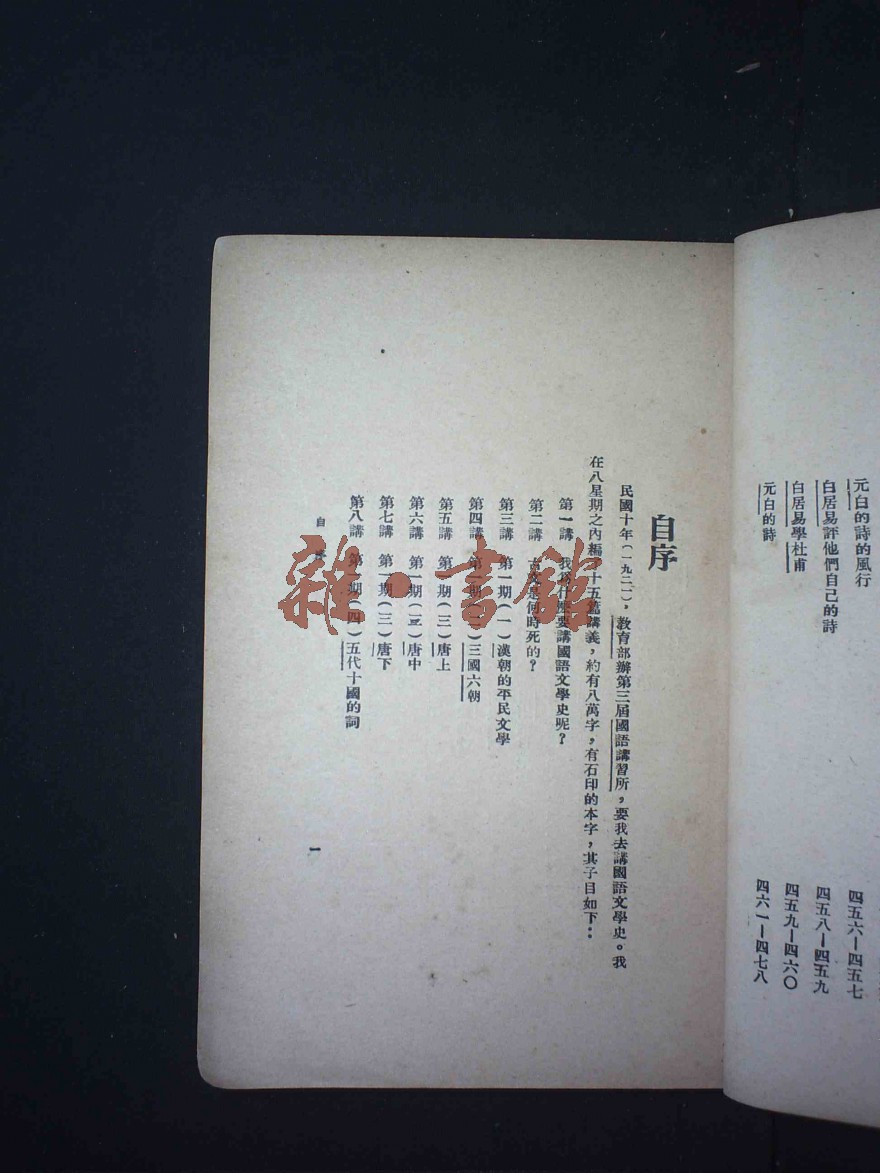 元白的詩的風行 四五六—四五七
白居易評他們自己的詩 四五八—四五九
白居易學杜甫 四五九—四六〇
元白的詩 四六一—四七八
自序
民國十年(一九二一),教育部辦第三屆國語講習所,要我去講國語文學史。我
在八星期之內編了十五篇講義,約有八萬字,有石印的本字,其子目如下:
第一講 我為什麼要講國語文學史呢?
第二講 古文是何時死的?
第三講 第一期(一)漢朝的平民文學
第四講 第一期(二)三國六朝
第五講 第一期(三)唐上
第六講 第一期(三)唐中
第七講 第一期(三)唐下
第八講 第一期(四)五代十國的詞
自序 一
雜·書館